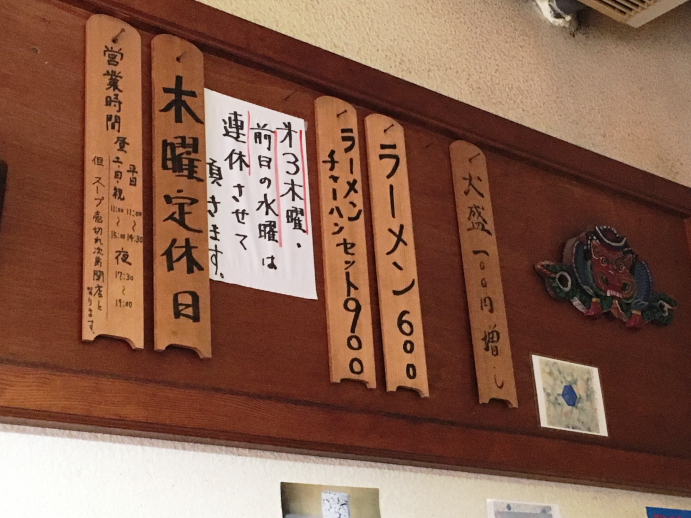 営業時間
昼 平日 11:00〜14:30
土・日・祝 11:00〜15:00
夜 17:30〜19:00
但、スープ売切れ次第閉店と
なります。
木曜定休日
第3木曜・
前日の水曜は
連休させて
頂きます。
ラーメン
チャーハンセット900
ラーメン600
大盛 一〇〇円増し